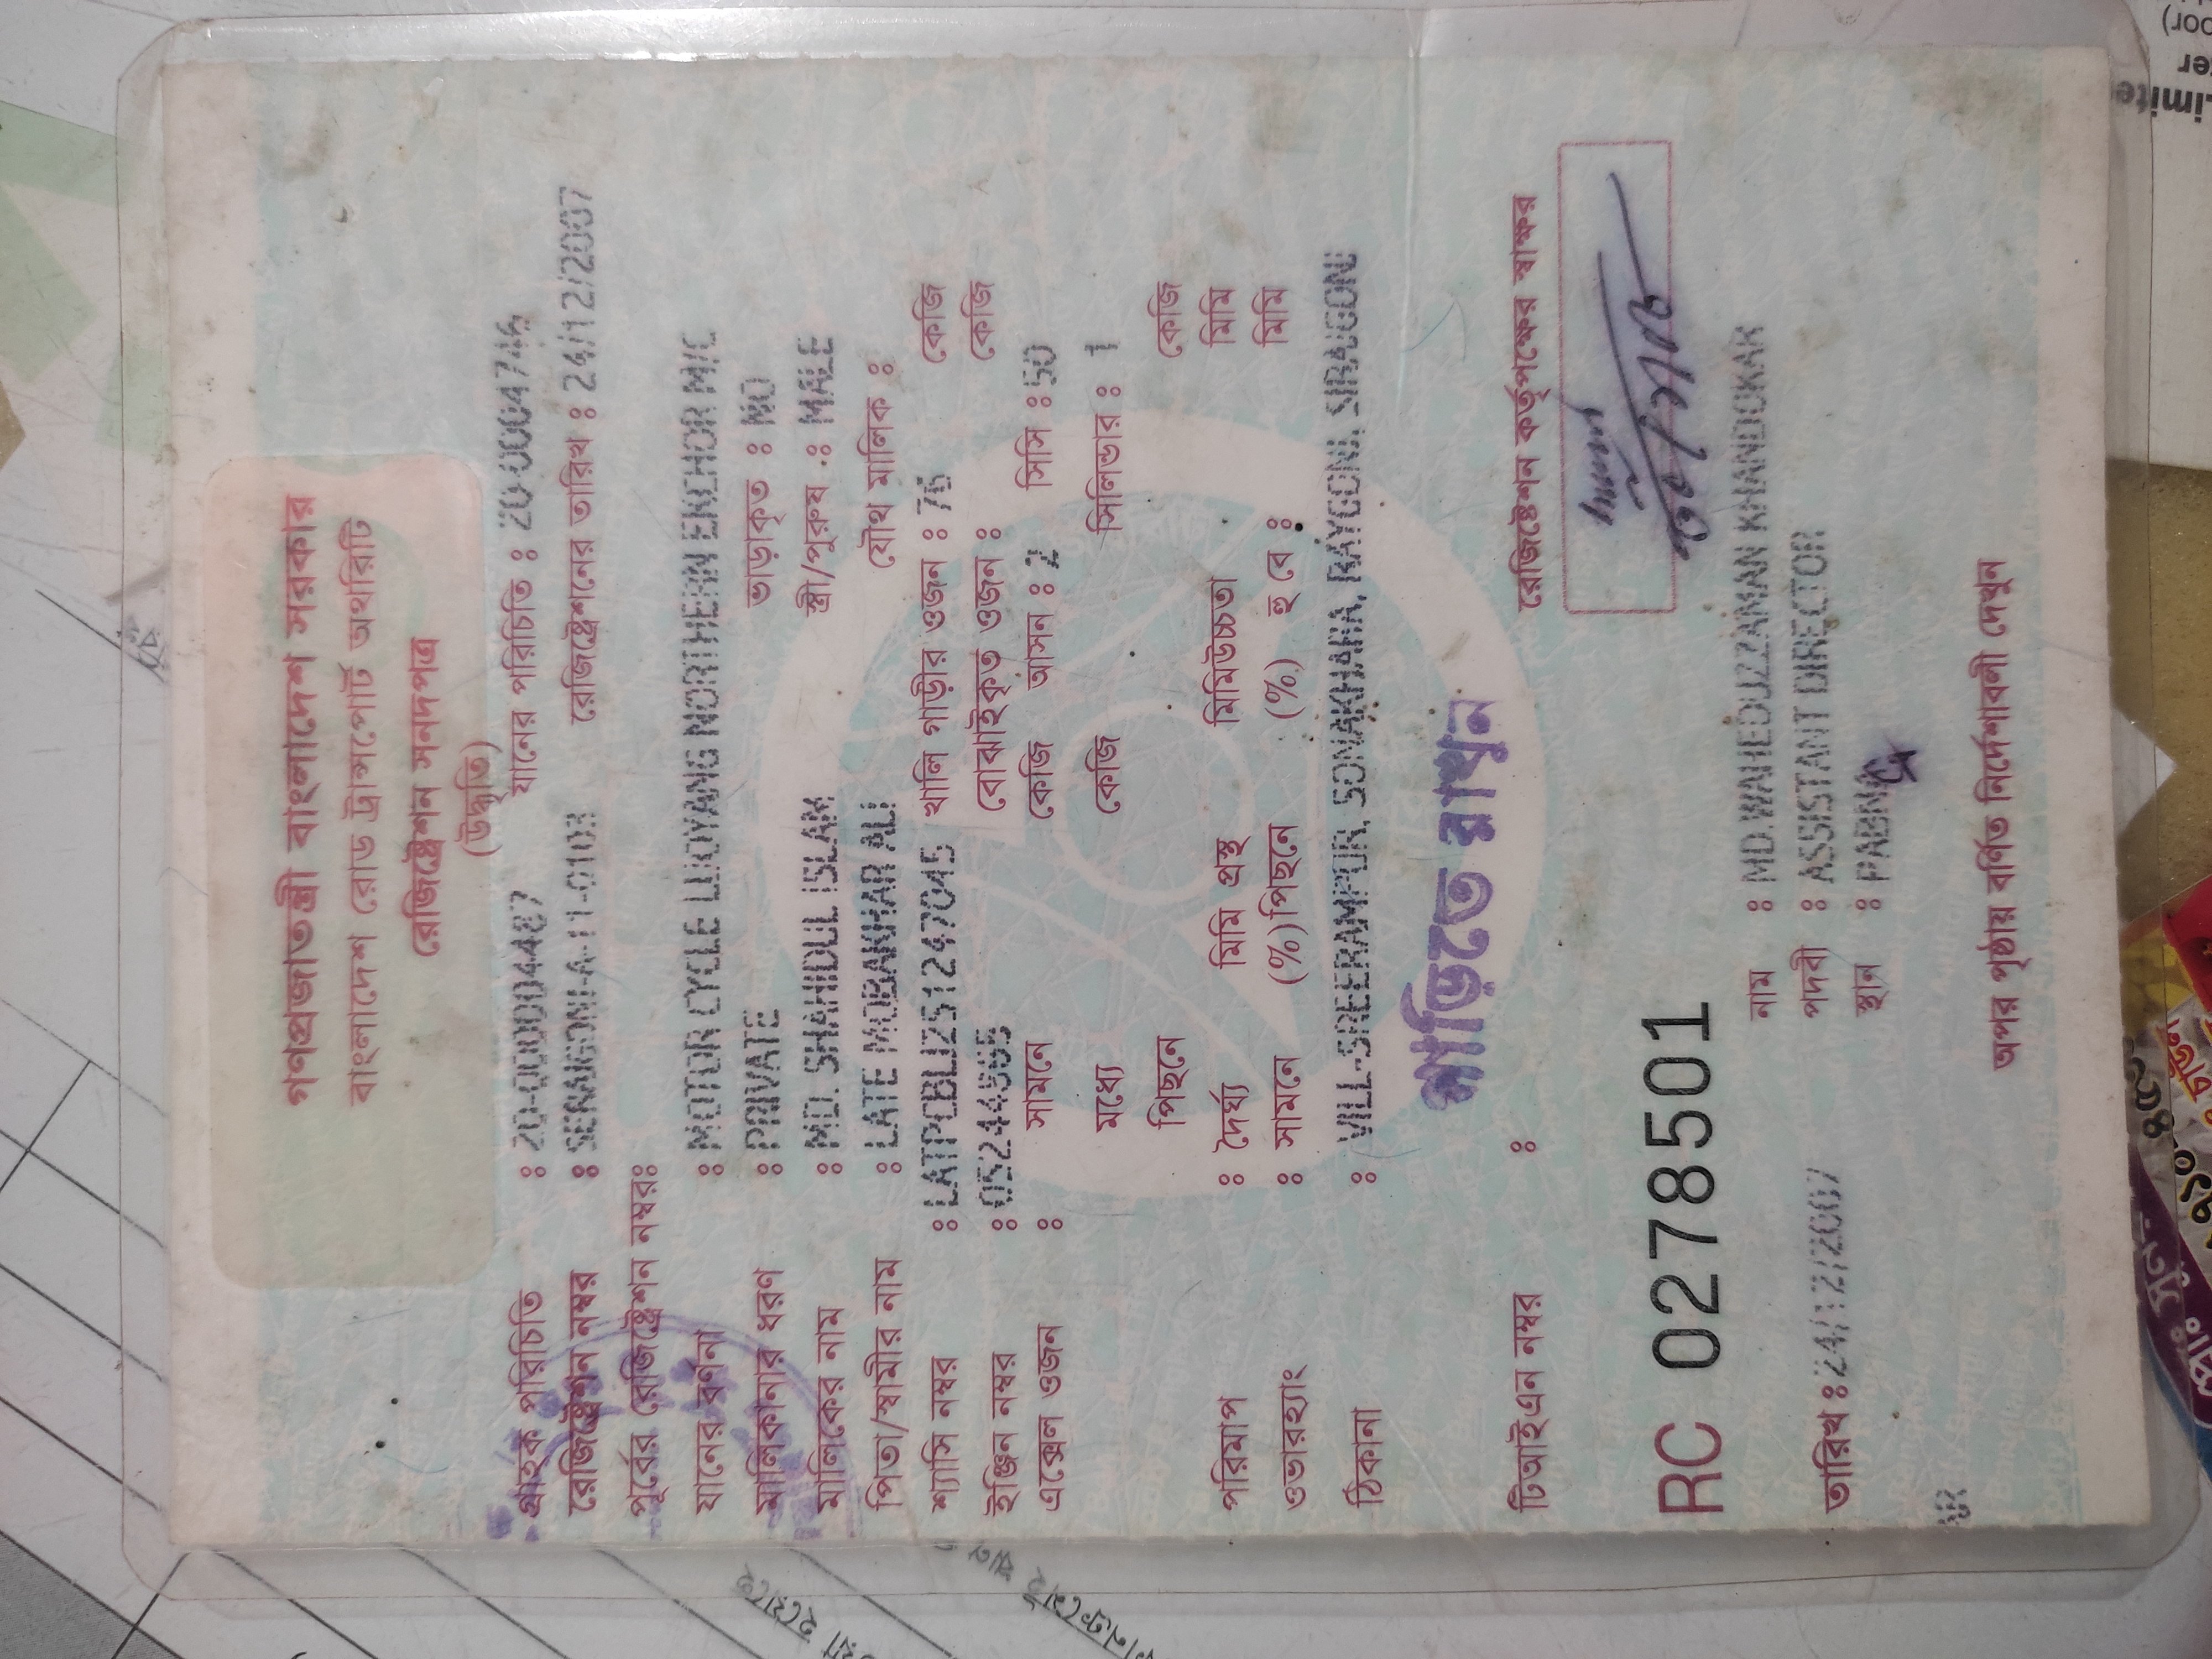 গণপ্রজাতন্ত্রী বাংলাদেশ সরকার
বাংলাদেশ রোড ট্রান্সপোর্ট অথরিটি
রেজিষ্ট্রেশন সনদপত্র
(উদ্ধৃতি)
গ্রাহক পরিচিতি : 20-00004487 যানের পরিচিতি : 20-0004746
রেজিষ্ট্রেশন নম্বর : SERAJGONJ-A-11-0103 রেজিষ্ট্রেশনের তারিখ : 24/12/2007
পূর্বের রেজিষ্ট্রেশন নম্বরঃ
যানের বর্ণনা : MOTOR CYCLE LUOYANG NORTHERN EKCHOR M/C
মালিকানার ধরণ : PRIVATE ভাড়াকৃত : NO
মালিকের নাম : MD. SHAHIDUL ISLAM স্ত্রী/পুরুষ : MALE
পিতা/স্বামীর নাম : LATE MOBAKHAR ALI যৌথ মালিক :
শ্যাসি নম্বর : LATPCBLU251247045 খালি গাড়ীর ওজন : 76 কেজি
ইঞ্জিন নম্বর : 05244565 বোঝাইকৃত ওজন : কেজি
এক্সেল ওজন : সামনে কেজি আসন : 2 সিসি : 50
মধ্যে কেজি সিলিন্ডার : 1
পিছনে কেজি
পরিমাপ : দৈর্ঘ্য মিমি প্রস্থ মিমিউচ্চতা মিমি
ওভারহ্যাং : সামনে (%)পিছনে (%) হু বে : মিমি
ঠিকানা : VILL-SREERAMPUR, SONAKHARA, RAYGONJ, SIRAJGONJ
গাড়ীতে রাখুন
টিআইএন নম্বর : রেজিষ্ট্রেশন কর্তৃপক্ষের স্বাক্ষর
RC 0278501
নাম : MD.WAHEDUZZAMAN KHANDOKAR
তারিখ : 24/12/2007 পদবী : ASSISTANT DIRECTOR
স্থান : PABNA
অপর পৃষ্ঠায় বর্ণিত নির্দেশাবলী দেখুন